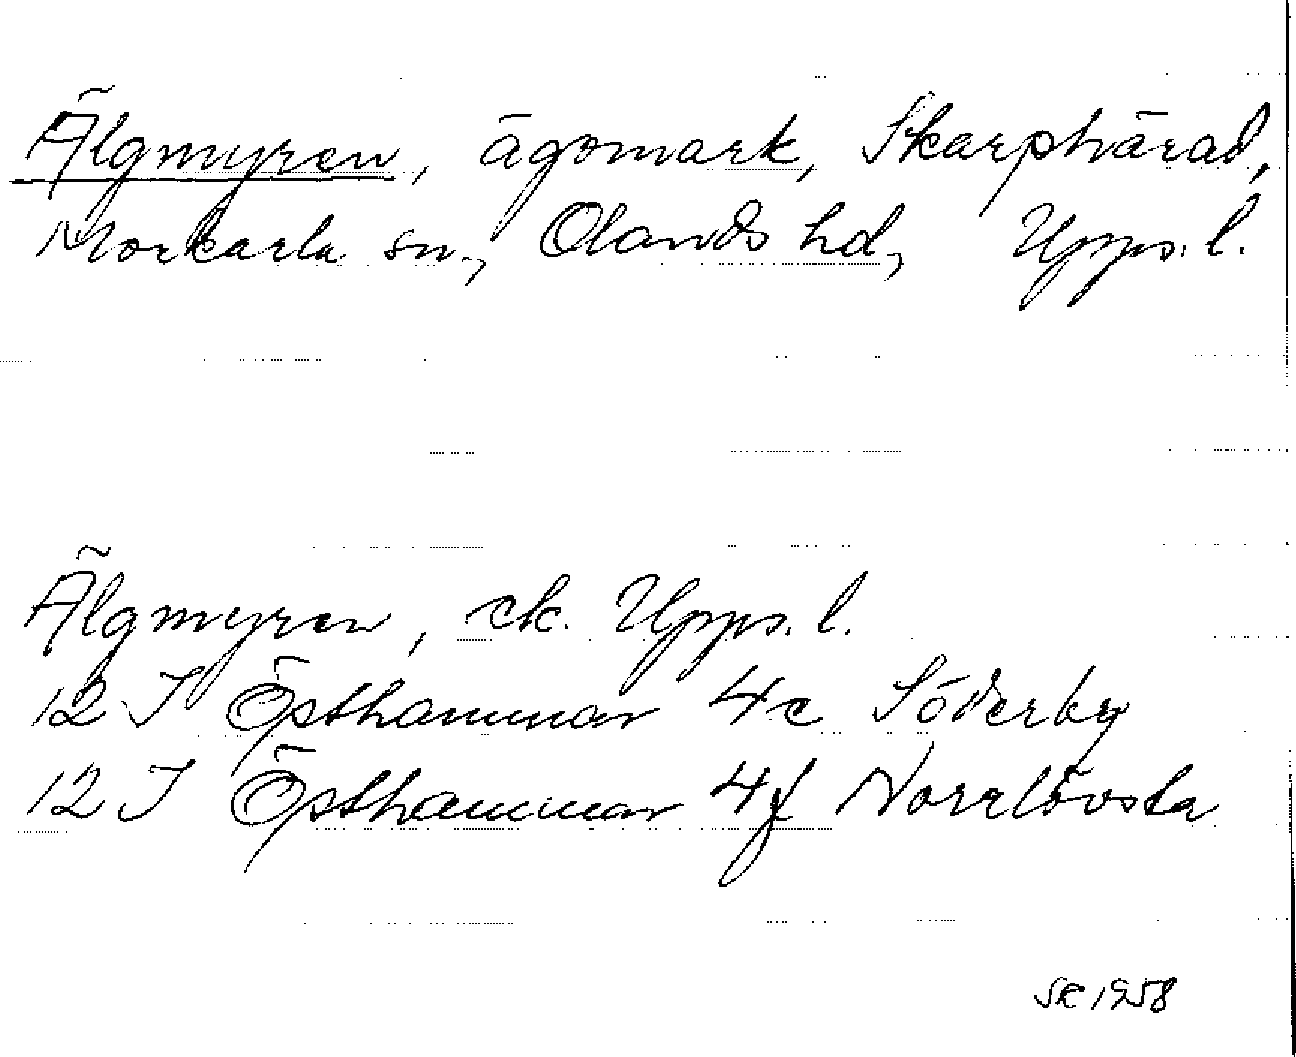 Älgmyren, ägomark, Skarphärad,
Morkarla sn., Olands hd, Upps. l.
Älgmyren, ek. Upps. l.
12 I Östhammar 4e Söderby
12 I Östhammar 4f Norrlövsta
SE 1958